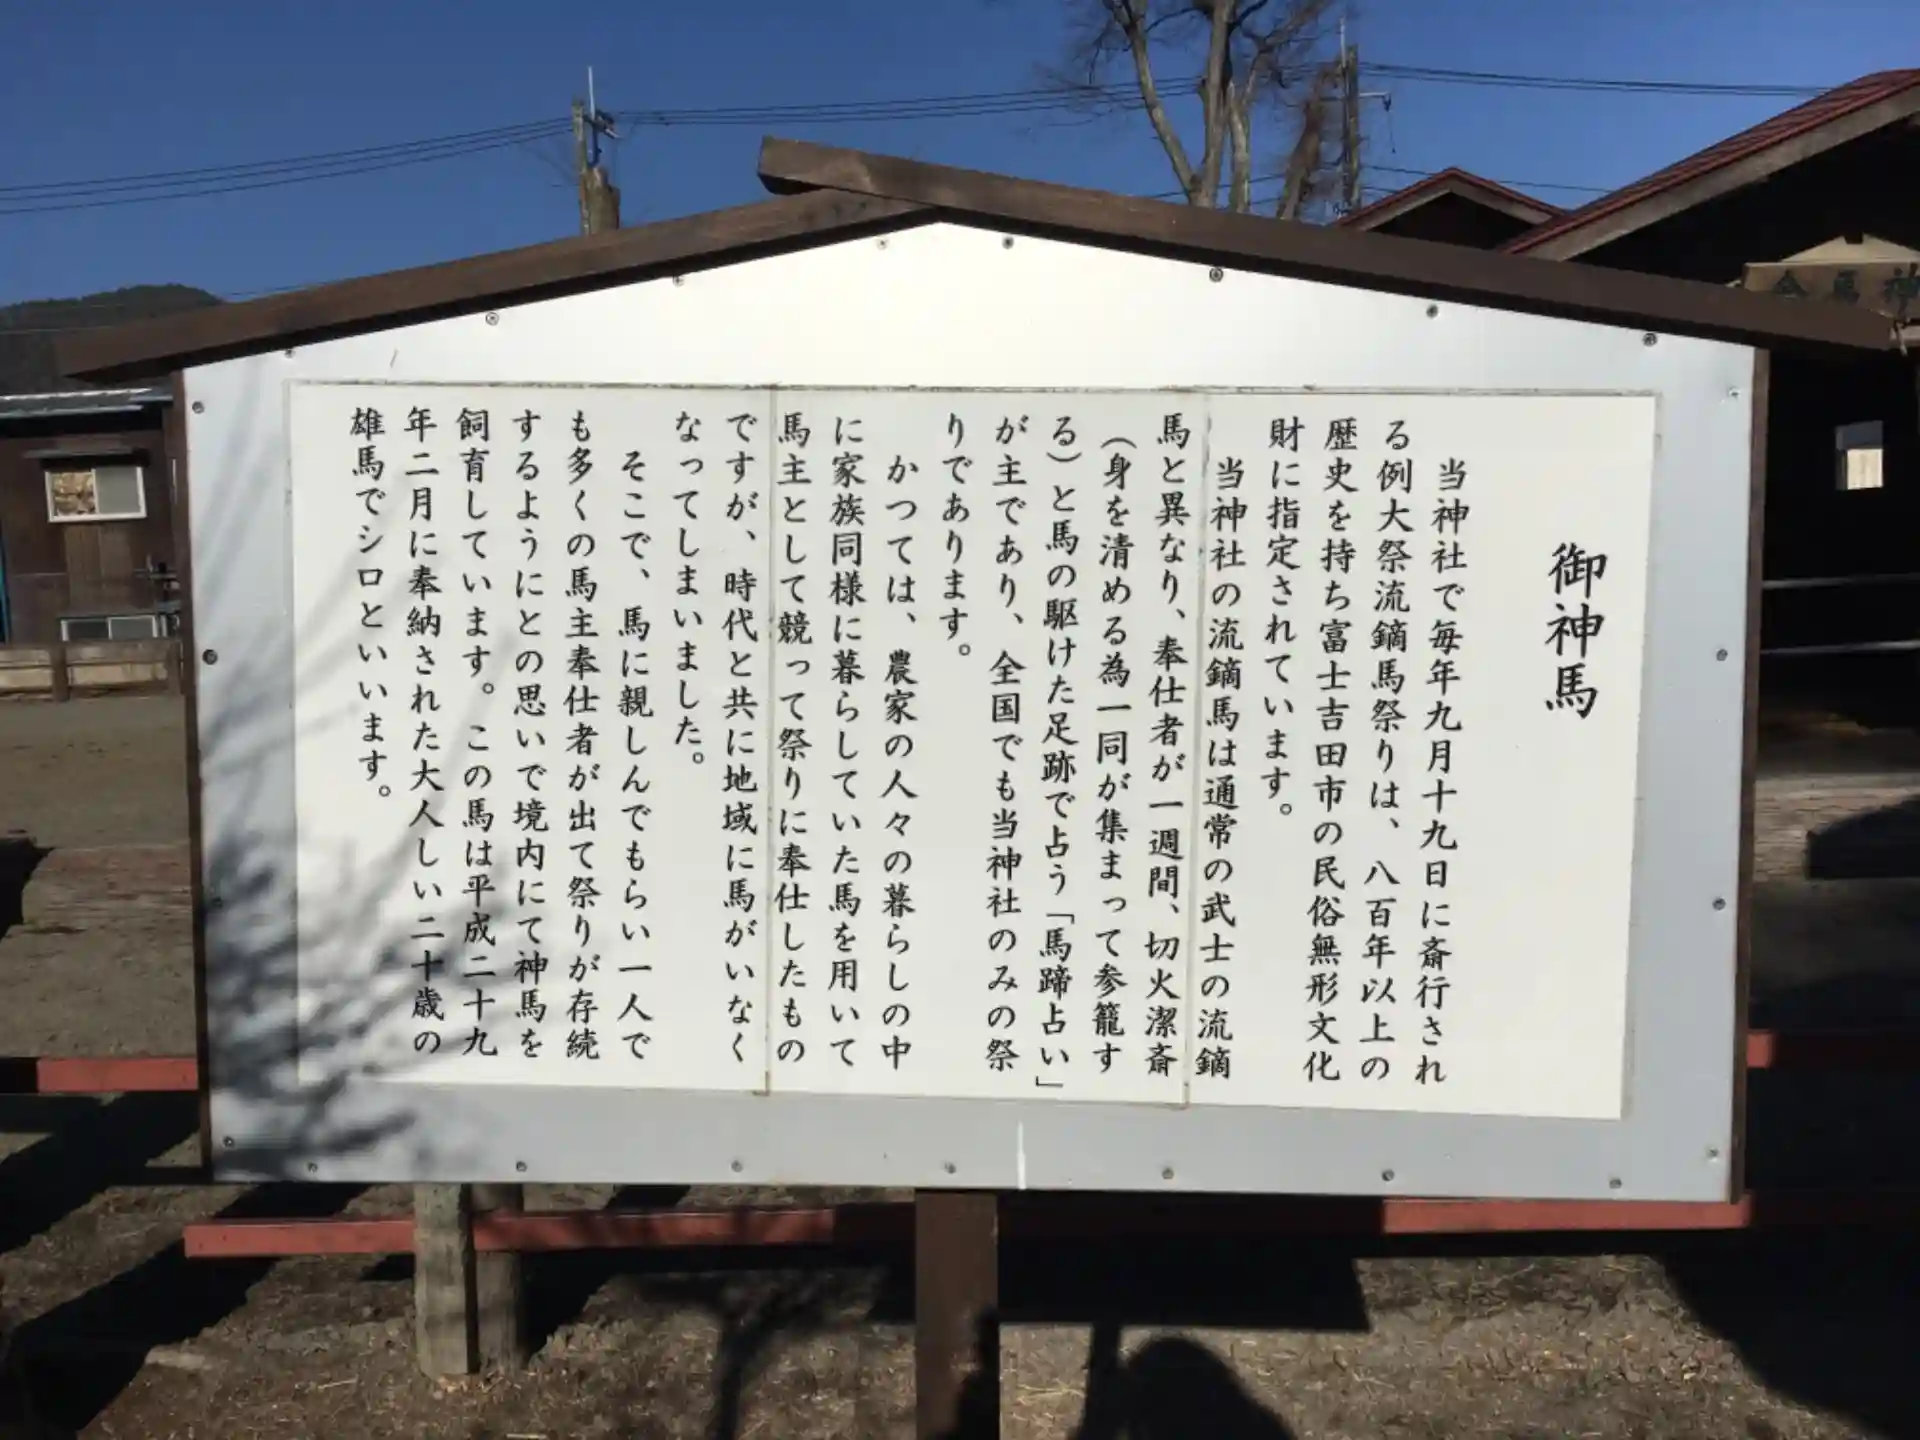 御神馬
当神社で毎年九月十九日に斎行され
る例大祭流鏑馬祭りは、八百年以上の
歴史を持ち富士吉田市の民俗無形文化
財に指定されています。
当神社の流鏑馬は通常の武士の流鏑
馬と異なり、奉仕者が一週間、切火潔斎
（身を清める為一同が集まって参籠す
る）と馬の駆けた足跡で占う「馬蹄占い」
が主であり、全国でも当神社のみの祭
りであります。
かつては、農家の人々の暮らしの中
に家族同様に暮らしていた馬を用いて
馬主として競って祭りに奉仕したもの
ですが、時代と共に地域に馬がいなく
なってしまいました。
そこで、馬に親しんでもらい一人で
も多くの馬主奉仕者が出て祭りが存続
するようにとの思いで境内にて神馬を
飼育しています。この馬は平成二十九
年二月に奉納された大人しい二十歳の
雄馬でシロといいます。
神馬舎